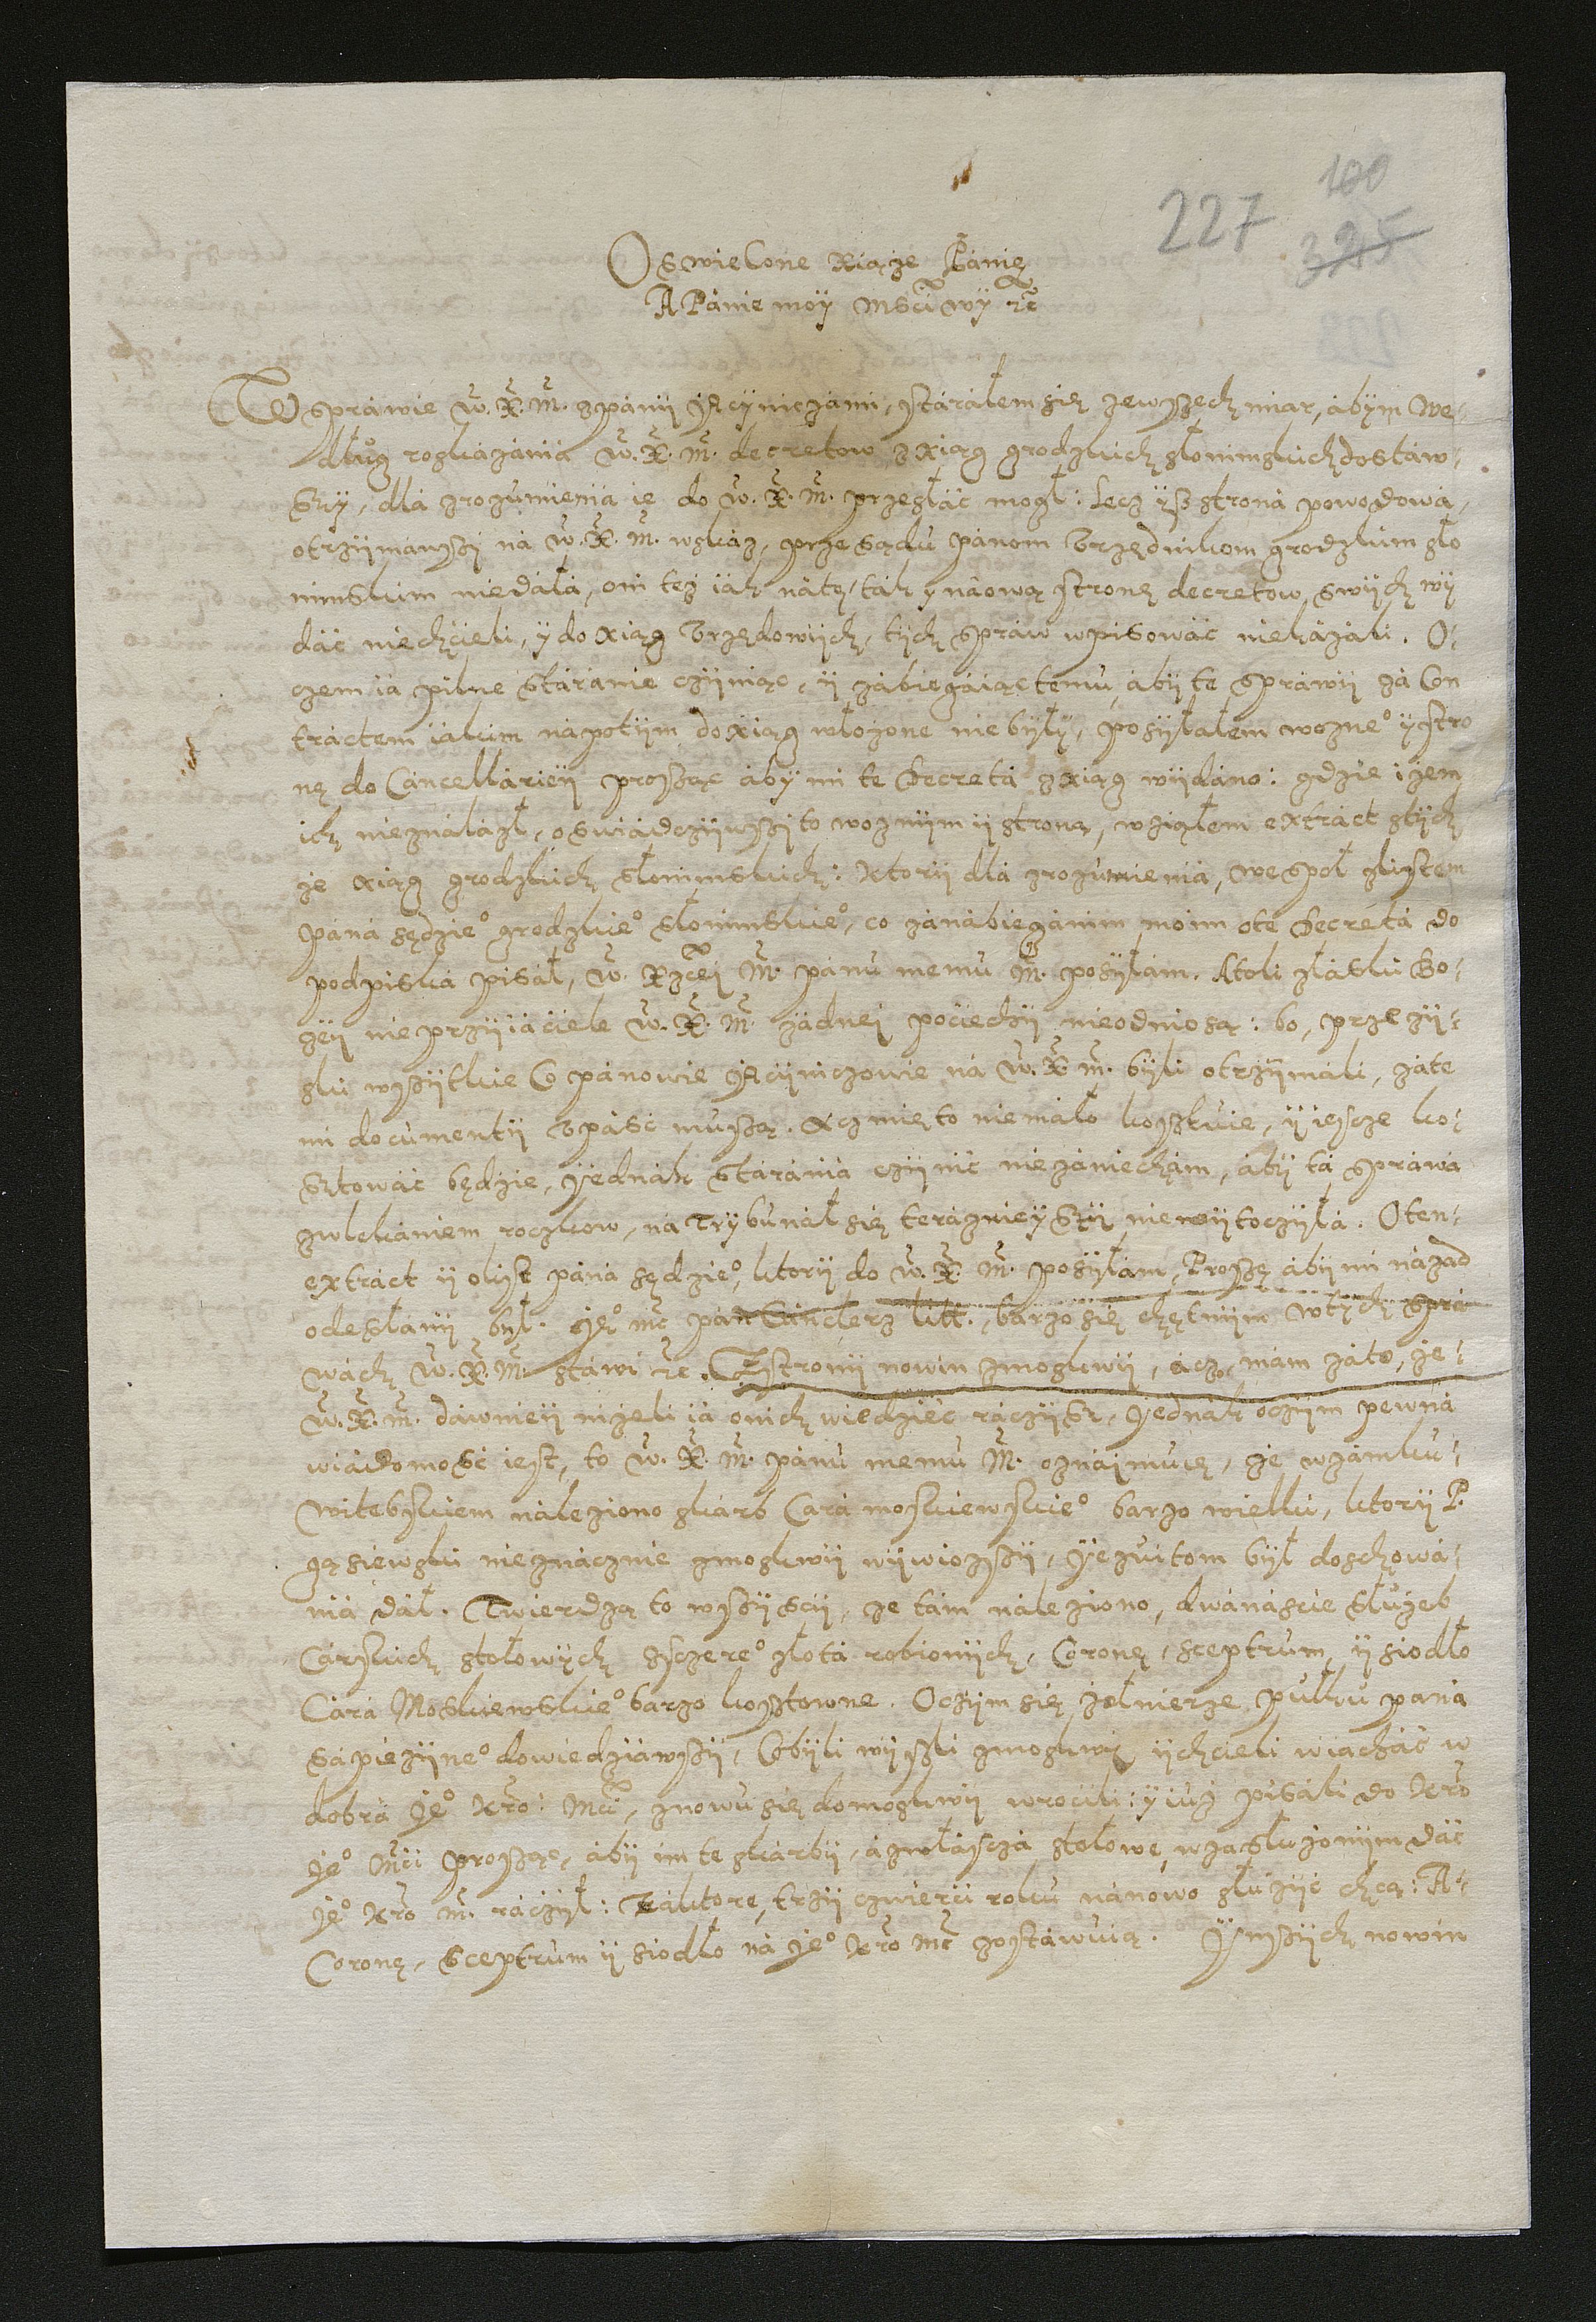 227 100
325
Oswiecone Xiąże Panię
A Panie moy Msciwy etc
W sprawie W. X. M. z pany Jacyniczami, staralem się ze wszech miar, abym we-
dlug roskazania W. X. M. decretow z xiąg grodzkich slonimskich dostaw-
szy, dla zrozumienia ie do W. X. M. przeslać mogl: Lecz yż strona powodowa,
otrzymawszy na W. X. M. wskaz, przesądu panom Urzędnikom grodzkim slo
nimskim niedala, oni też iak nátę, tak y náową stronę decretow swych wy
dać niechcieli, y do xiąg Urzędowych, tych spraw wpisować niekazali. O-
czem ia pilne staranie czyniąc, y zabiegaiąc temu, aby te sprawy za Con
tractem iakim napotym do xiąg wlożone niebyly, posylalem wozneo y stro
nę do Cancellariey prosząc aby mi te Decreta z xiąg wydano: gdzie iżem
ich nieznalazl, oswiadczywszy to woznym y stroną, wziąlem extract z tych
że xiąg grodzkich slonimskich: Ktory dla zrozumienia, wespol z listem
pana sędzieo grodzkieo slonimskieo, co zanabieganim moim o te Decreta do
podpiska pisal, W. Xżcei M. panu memu M. posylam. Atoli z laski Bo-
żey nieprzyiaciele W. X. M. żadnei pociechy nieodniosą: bo, przezy-
ski wszytkie Co panowie Jacyniczowie na W. X. M. byli otrzymali, zate
mi documenty upaść muszą. Acz mię to niemalo kosztuie, y iescze ko-
sztować będzie, Jednak starania czynić niezaniecham, aby ta sprawa
zwlekaniem roczkow, na Trybunal się teraznieyszy niewytoczyla. Oten-
extract y o list pana sędzieo, ktory do W. X. M. posylam, Proszę aby mi nazad
odeslany byl. Jeo mć pan Canclerz litt. barzo się chętnym w tych spra
wach W. X. M. stawi etc. Z strony nowin z Moskwy, acz mam zato, że-
W. X. M. dawniey niżeli ia o nich wiedzieć raczysz, Jednak o czym pewna
wiadomość iest, to W. X. M. panu memu M. oznaimuię, że w zamku-
Witebskiem naleziono skarb Cara moskiewskieo barzo wielki, ktory P.
Gąsiewski nieznacznie z moskwy wywiozszy, Jezuitom byl do schowa-
nia dal. Twierdzą to wszyscy, że tam naleziono, dwanascie Slużeb
Carskich stolowych szczereo zlota robionych, Coronę, sceptrum, y siodlo
Cara Moskiewskieo barzo kosztowne. O czym się żolnierze pulku pana
Sapiezyneo dowiedziawszy, Co byli wyszli z moskwy y chcieli wiachać w
dobra Jeo Kro: Mci, znowu się do moskwy wrocili: y iuż pisali do Kro
Jeo Mci prosząc, aby im te skarby, a zwlascza stolowe, w zaslużonym dać
Jeo Kro M. raczyl: Za ktore, trzy czwierci roku nanowo slużyć chcą: A-
Coronę, Sceptrum y siodlo na Jeo Kro Mć zostawuią. Inszych nowin